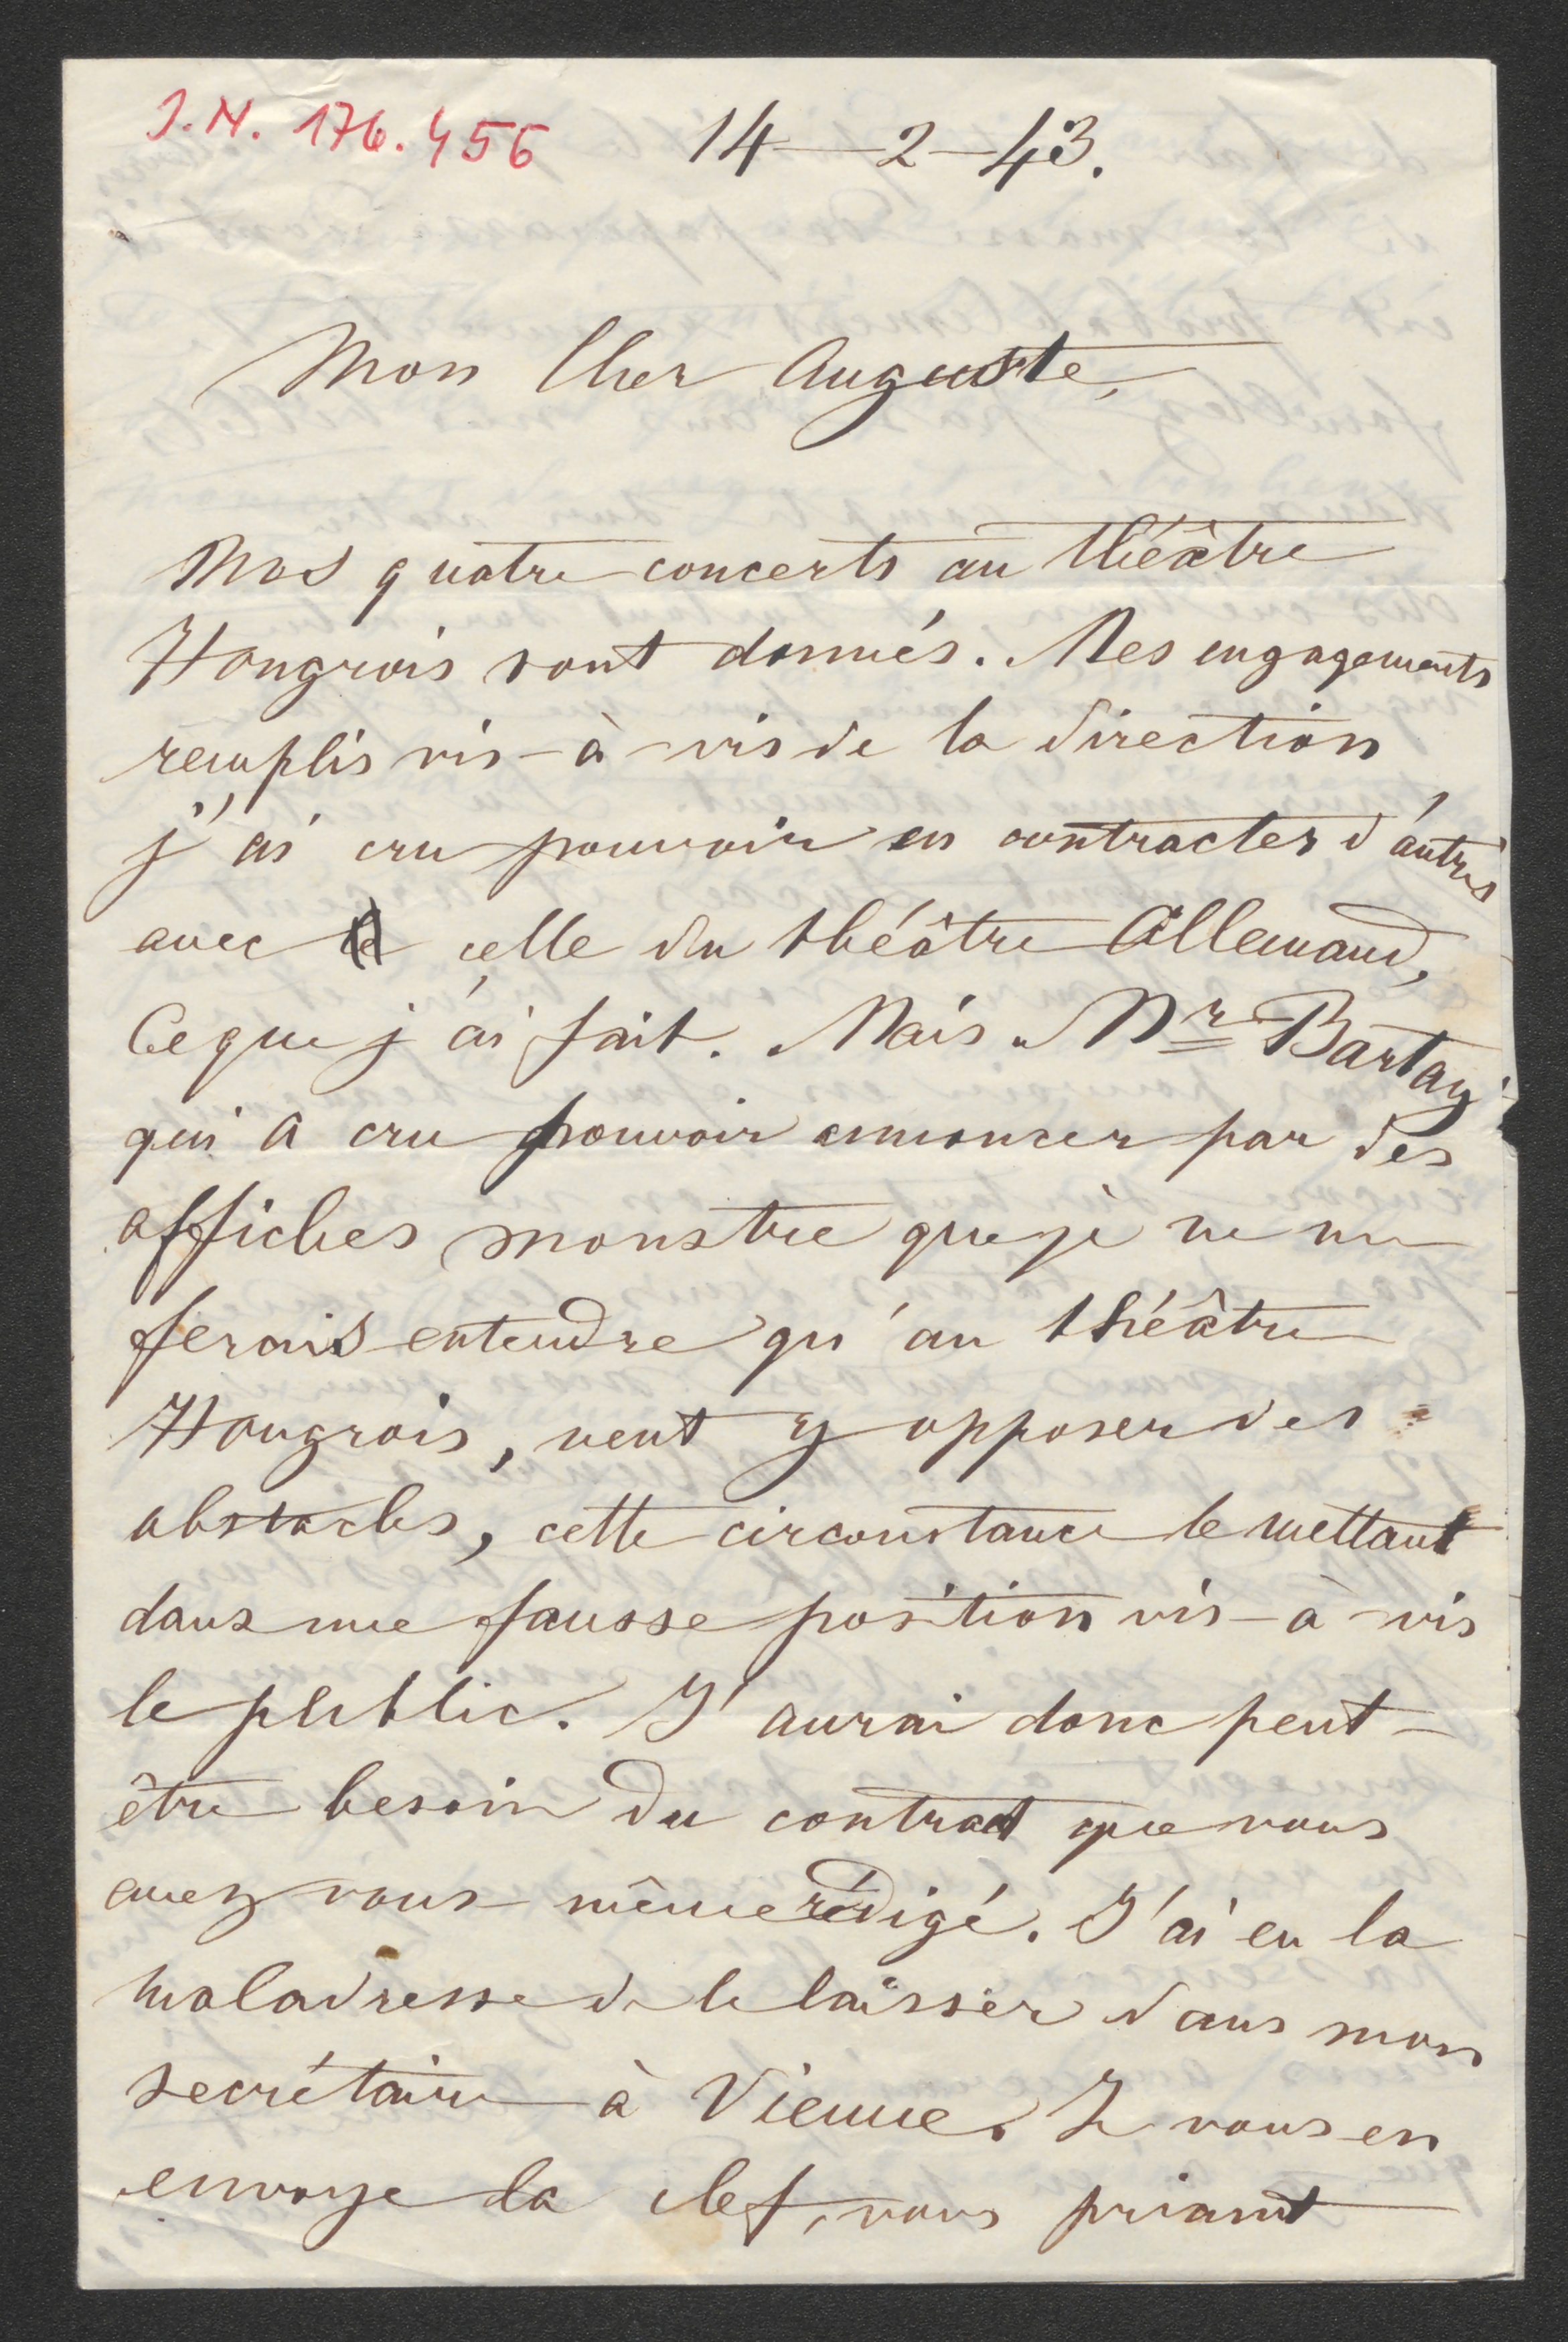 J.N. 176.456
14-2-43.
Mon Cher Auguste,
Mes quatre concerts au théâtre
Hongrois sont donnés. Mes engagements
remplis vis-à-vis de la direction
j'ai cru pouvoir en contracter d'autres
avec celle du théâtre Allemand,
Ce que j'ai fait. Mais Mr Bartay
qui a cru pouvoir annoncer par des
affiches monstre que je ne me
ferais entendre qu'au théâtre
Hongrois, veut y opposer des
obstacles, cette circonstance le mettant
dans une fausse position vis-à-vis
le public. J'aurai donc peut-
être besoin du contract que vous
avez vous-même rédigé. J'ai eu la
maladresse de le laisser dans mon
secrétaire à Vienne. Je vous en
envoye la clef, vous priant